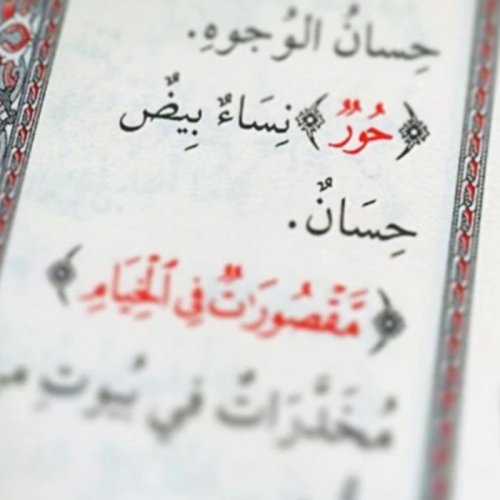 حِسانُ الوُجوهِ.
﴿حُورٌ﴾ نِسَاءٌ بِيضٌ
حِسَانٌ.
﴿مَّقْصُورَٰتٌ فِي ٱلْخِيَامِ﴾
مُخَدَّرَاتٌ في بُيوتٍ